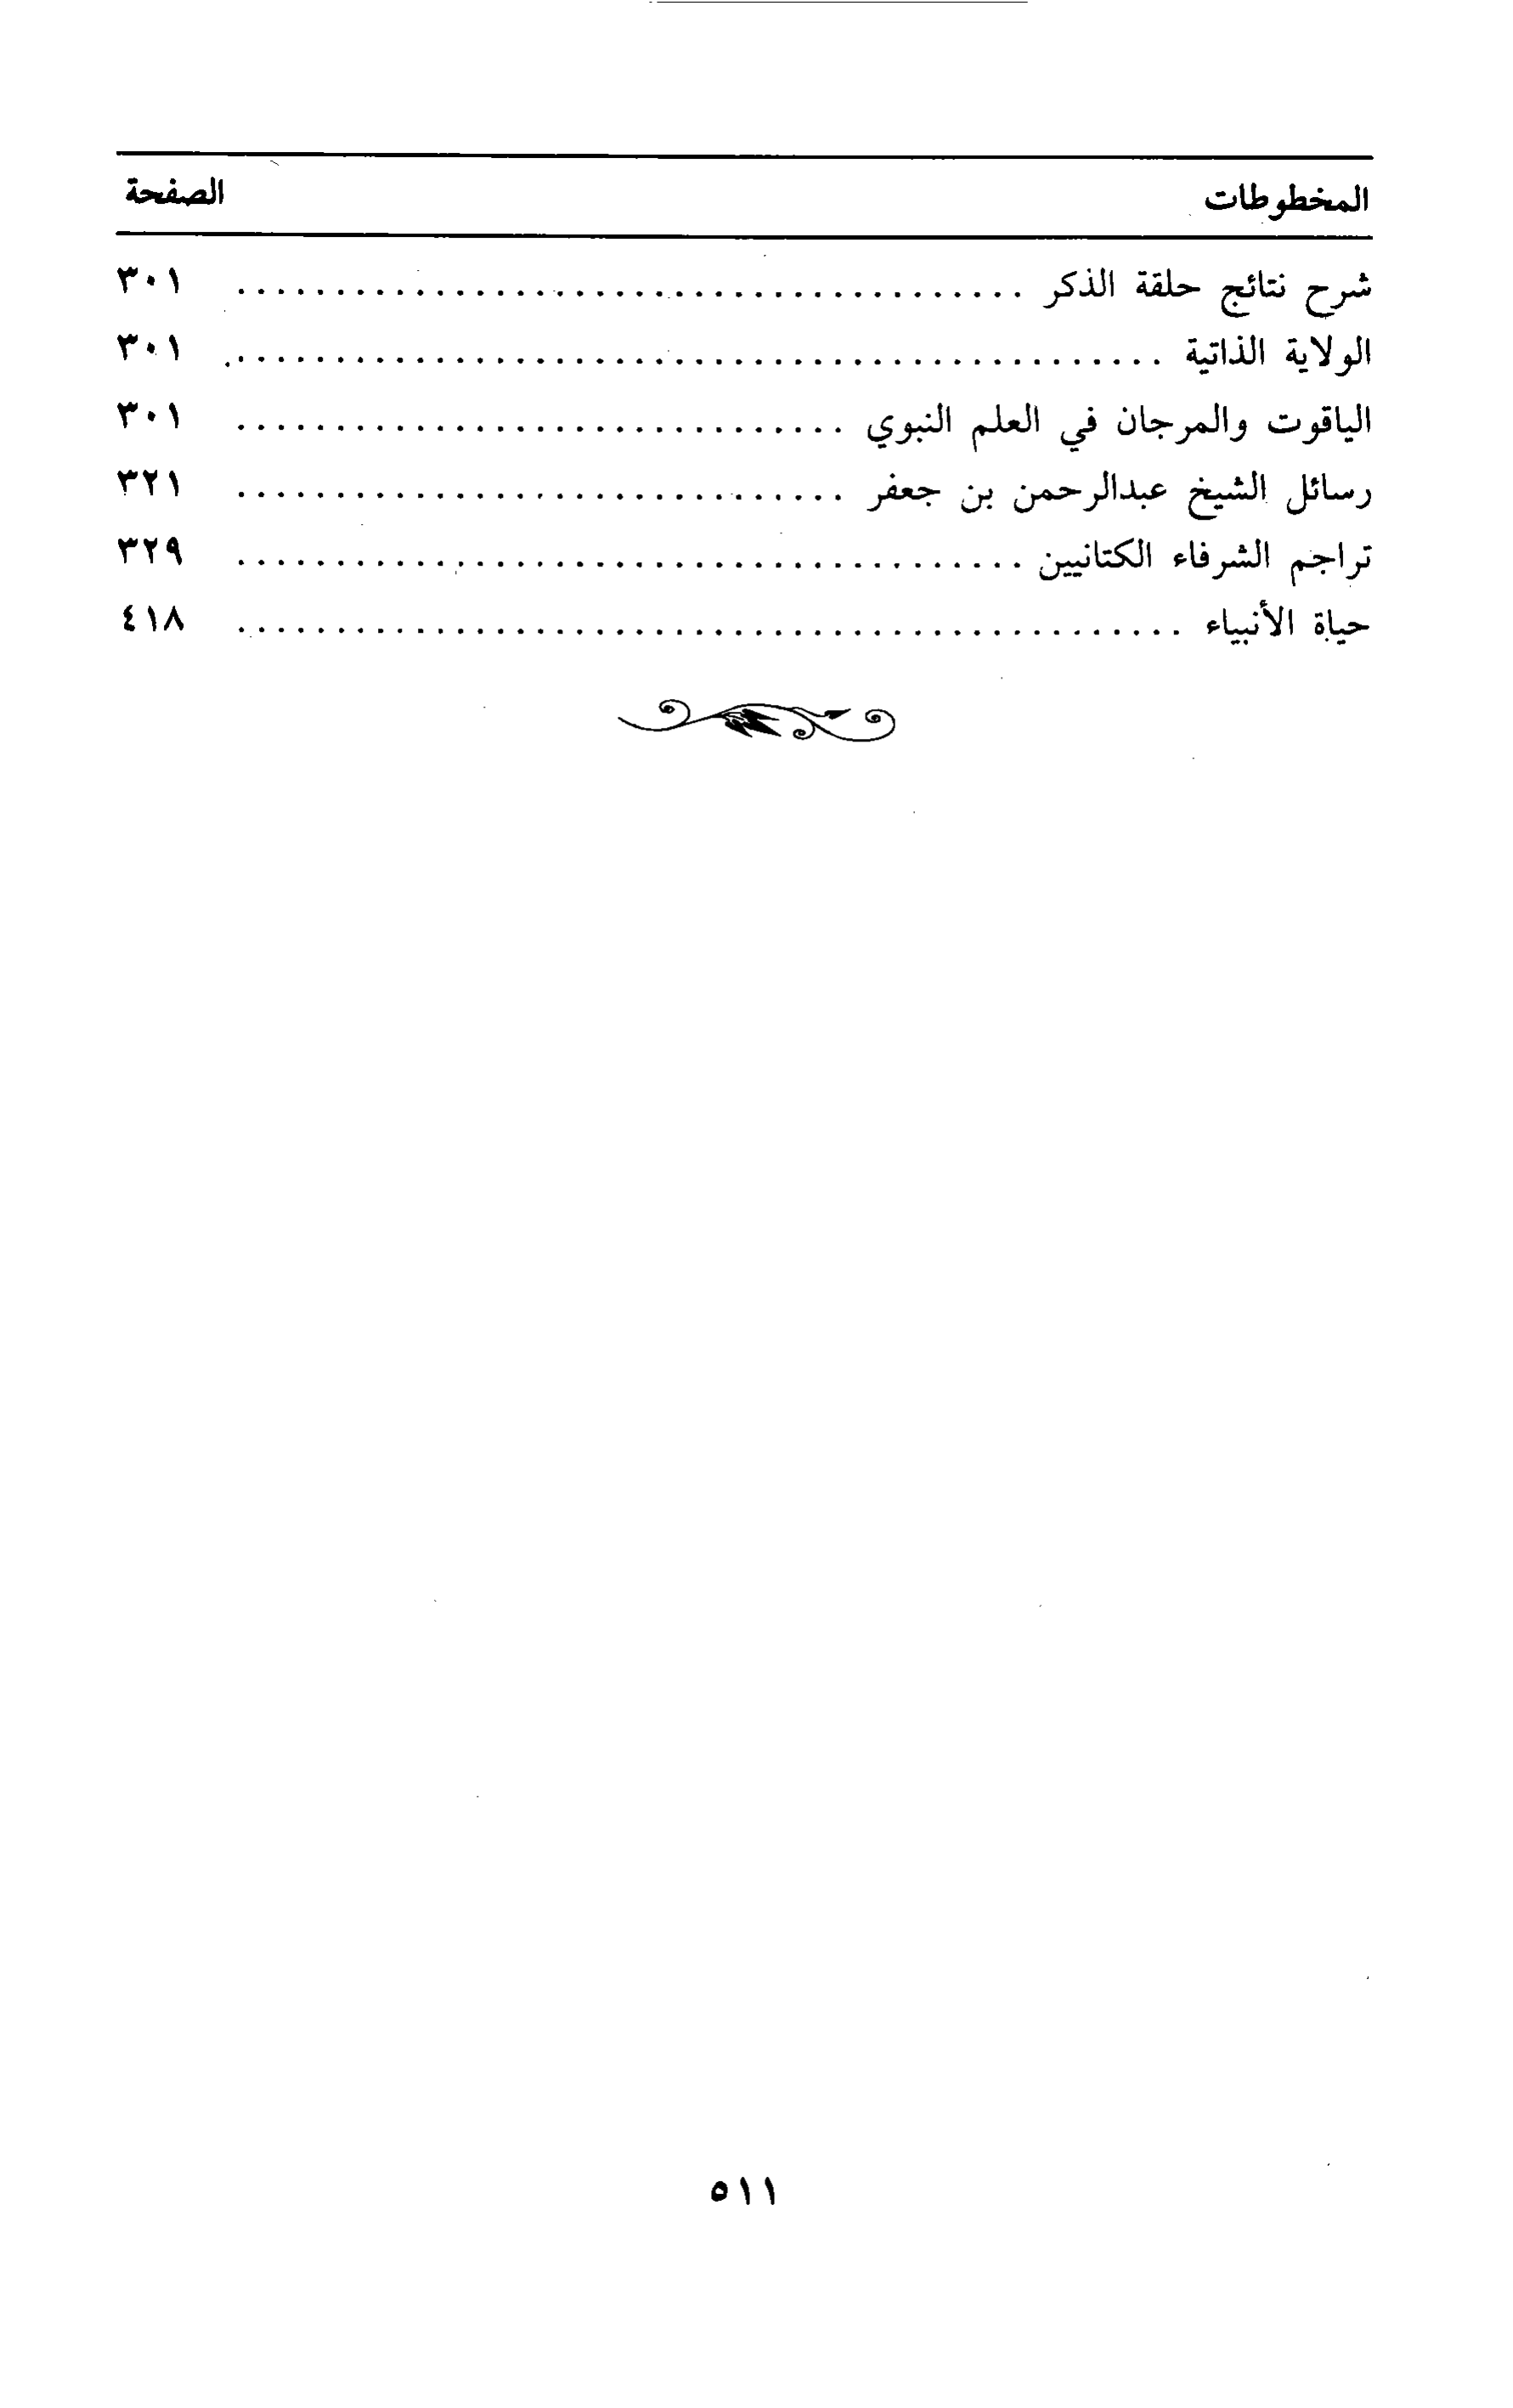 المخطوطات الصفحة
شرح نتائج حلقة الذكر ........................................ ٣٠١
الولاية الذاتية ............................................... ٣٠١
الياقوت والمرجان في العلم النبوي ............................... ٣٠١
رسائل الشيخ عبدالرحمن بن جعفر ............................... ٣٢١
تراجم الشرفاء الكتانيين ........................................ ٣٢٩
حياة الأنبياء ................................................ ٤١٨
٥١١